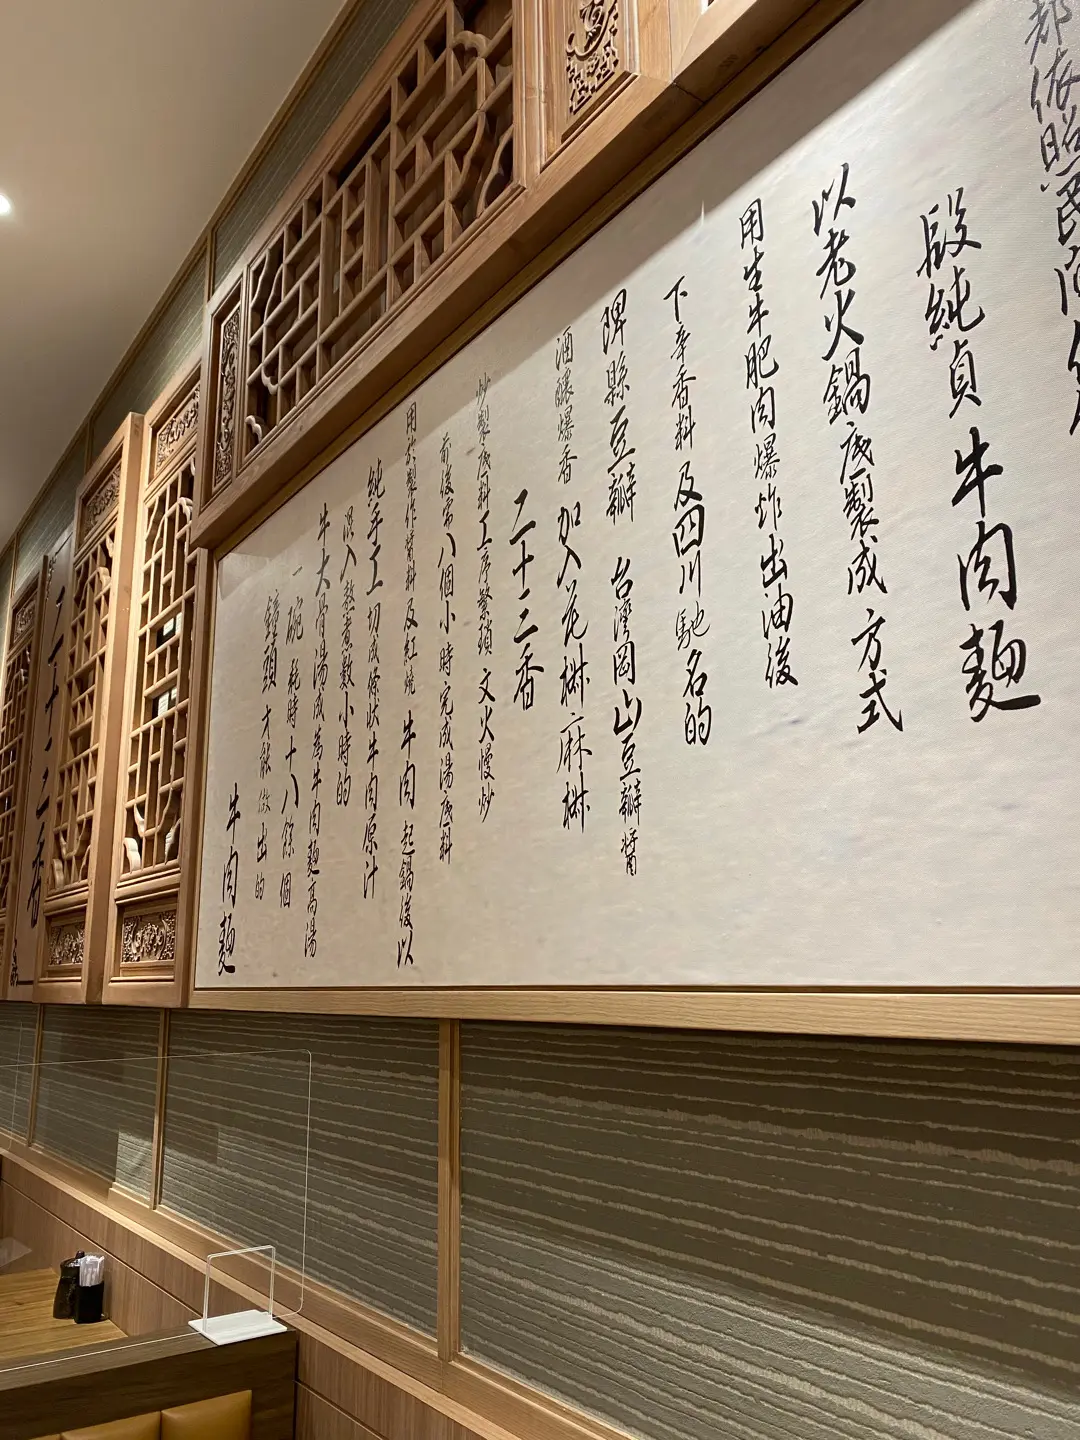 都依照
段純貞 牛肉麵
以老火鍋底製成 方式
用生牛肥肉爆炸出油後
下辛香料及四川馳名的
郫縣豆瓣 台灣岡山豆瓣醬
酒釀爆香 加入花椒麻椒
二十二香
炒製底料工序繁瑣 文火慢炒
前後需八個小時完成湯底料
用於製作醬料及紅燒 牛肉 起鍋後以
純手工切成條狀牛肉原汁
混入熬煮數小時的
牛大骨湯成為牛肉麵高湯
一碗 耗時十八餘個
鐘頭 才能做出的
牛肉麵
二十二香